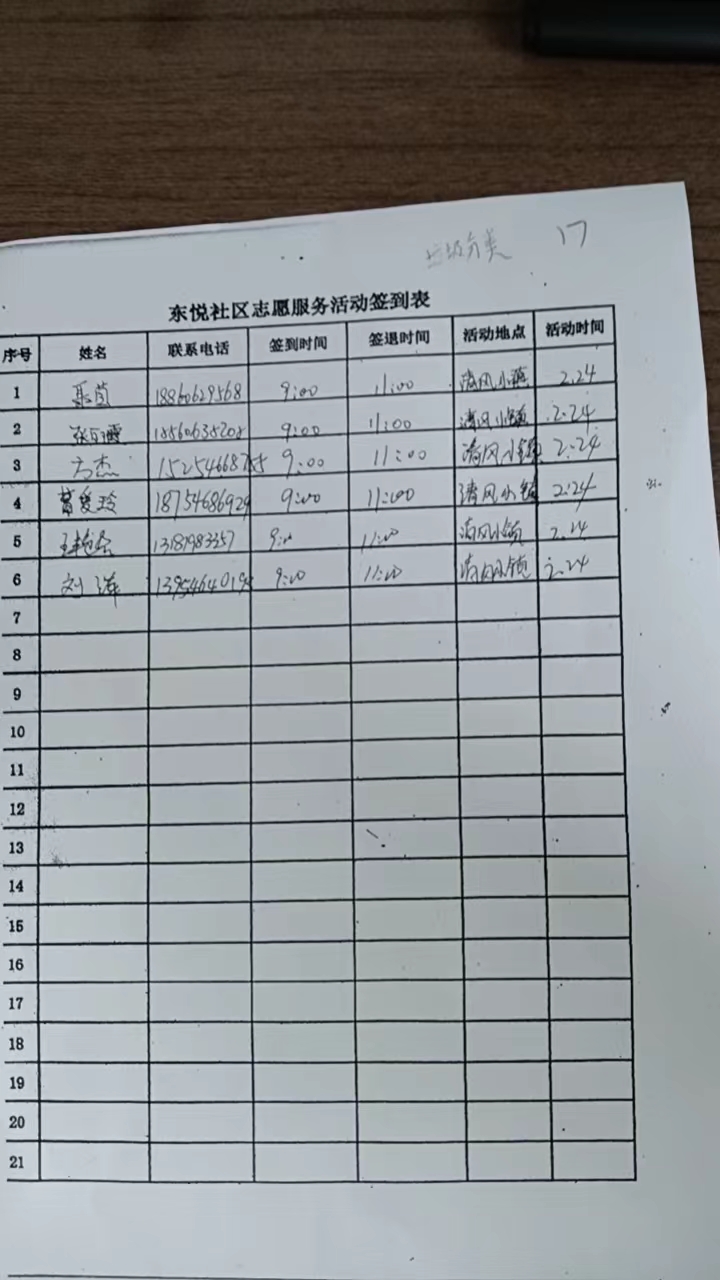 垃圾分类 17
东悦社区志愿服务活动签到表
序号 姓名 联系电话 签到时间 签退时间 活动地点 活动时间
1 18860629568 9:00 11:00 清风小镇 2.24
2 18560635208 9:00 11:00 清风小镇 2.24
3 方杰 9:00 11:00 清风小镇 2.24
4 黄爱玲 18754686929 9:00 11:00 清风小镇 2.24
5 13181983357 9:00 11:00 清风小镇 2.24
6 刘洋 9:00 11:00 清风小镇 2.24
7
8
9
10
11
12
13
14
15
16
17
18
19
20
21